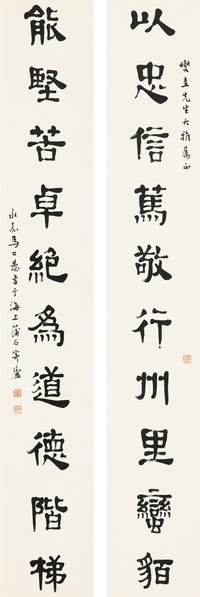 燮圭先生大雅属正
以忠信篤敬行州里蠻貊
能堅苦卓絕爲道德階梯
永嘉馬公愚書于海上蒲石寄廬